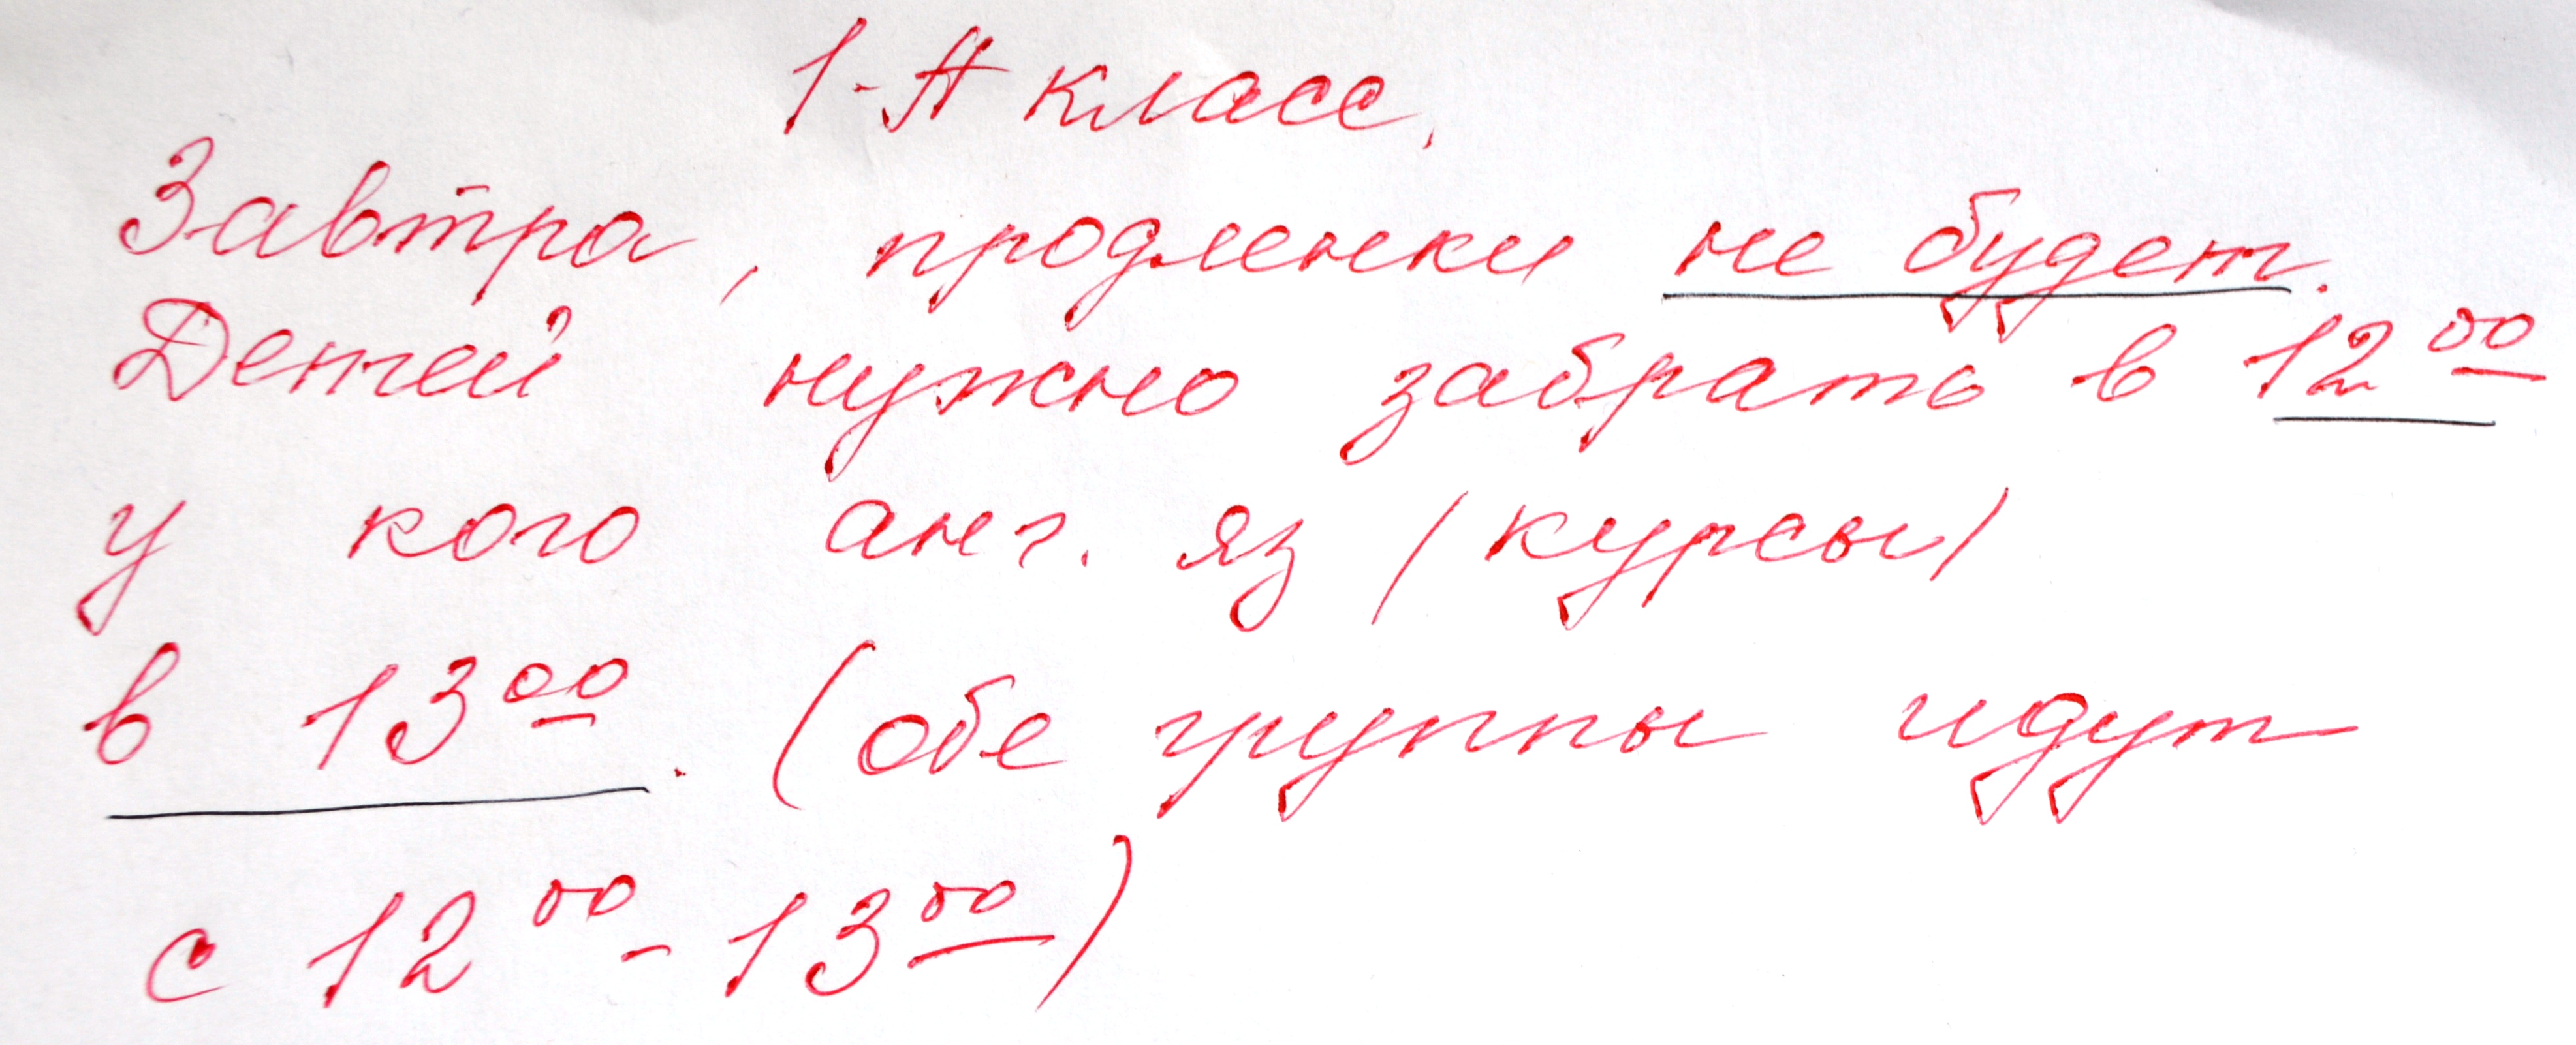 1-А класс.
Завтра, продленки не будет.
Детей нужно забрать в 12⁰⁰
у кого анг. яз (курсы)
в 13⁰⁰. (обе группы идут
с 12⁰⁰ - 13⁰⁰)